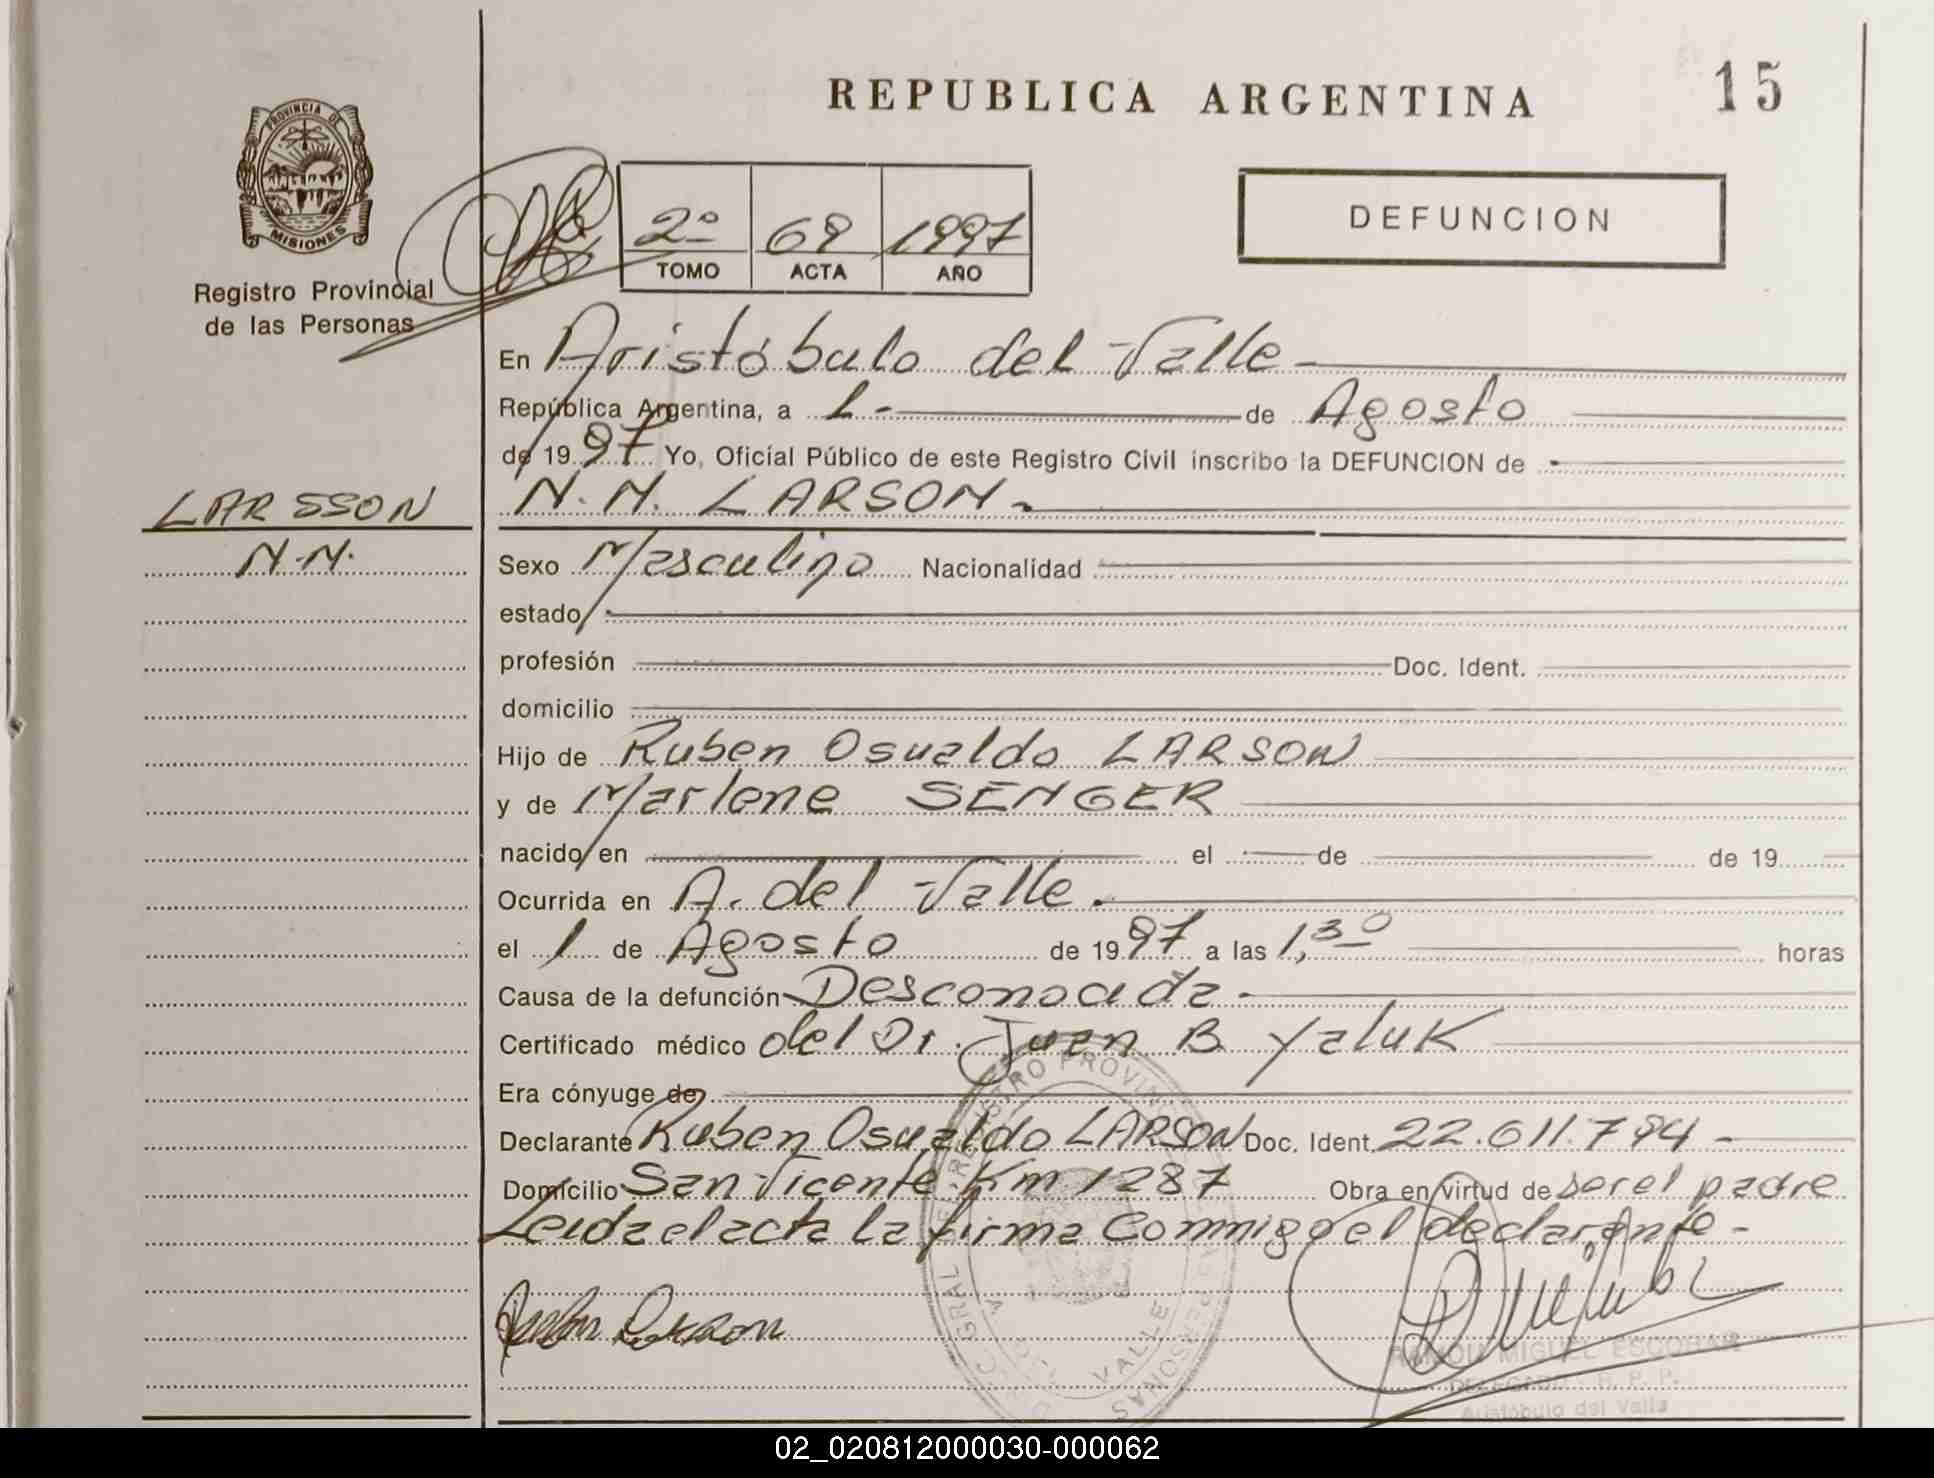 REPUBLICA ARGENTINA
15
PROVINCIA DE
MISIONES
Registro Provincial
de las Personas
2º 68 1997
TOMO ACTA AÑO
DEFUNCION
LARSSON
N.N.
En Aristóbulo del Valle
República Argentina, a 1 de Agosto
de 1997 Yo, Oficial Público de este Registro Civil inscribo la DEFUNCION de
N.N. LARSON
Sexo Masculino Nacionalidad
estado
profesión Doc. Ident.
domicilio
Hijo de Ruben Osvaldo LARSON
y de Marlene SENGER
nacido en el de de 19
Ocurrida en A. del Valle.
el 1 de Agosto de 1997 a las 1,30 horas
Causa de la defunción Desconocida
Certificado médico del Dr. Juan B. Yaluk
Era cónyuge de
Declarante Ruben Osvaldo LARSON Doc. Ident. 22.611.794
Domicilio San Vicente Km 1287 Obra en virtud de ser el padre
Leida el acta la firma Conmigo el declarante
RAMON MIGUEL ESCOBAR
DELEGADO - R. P. P.
Aristóbulo del Valle
02_020812000030-000062